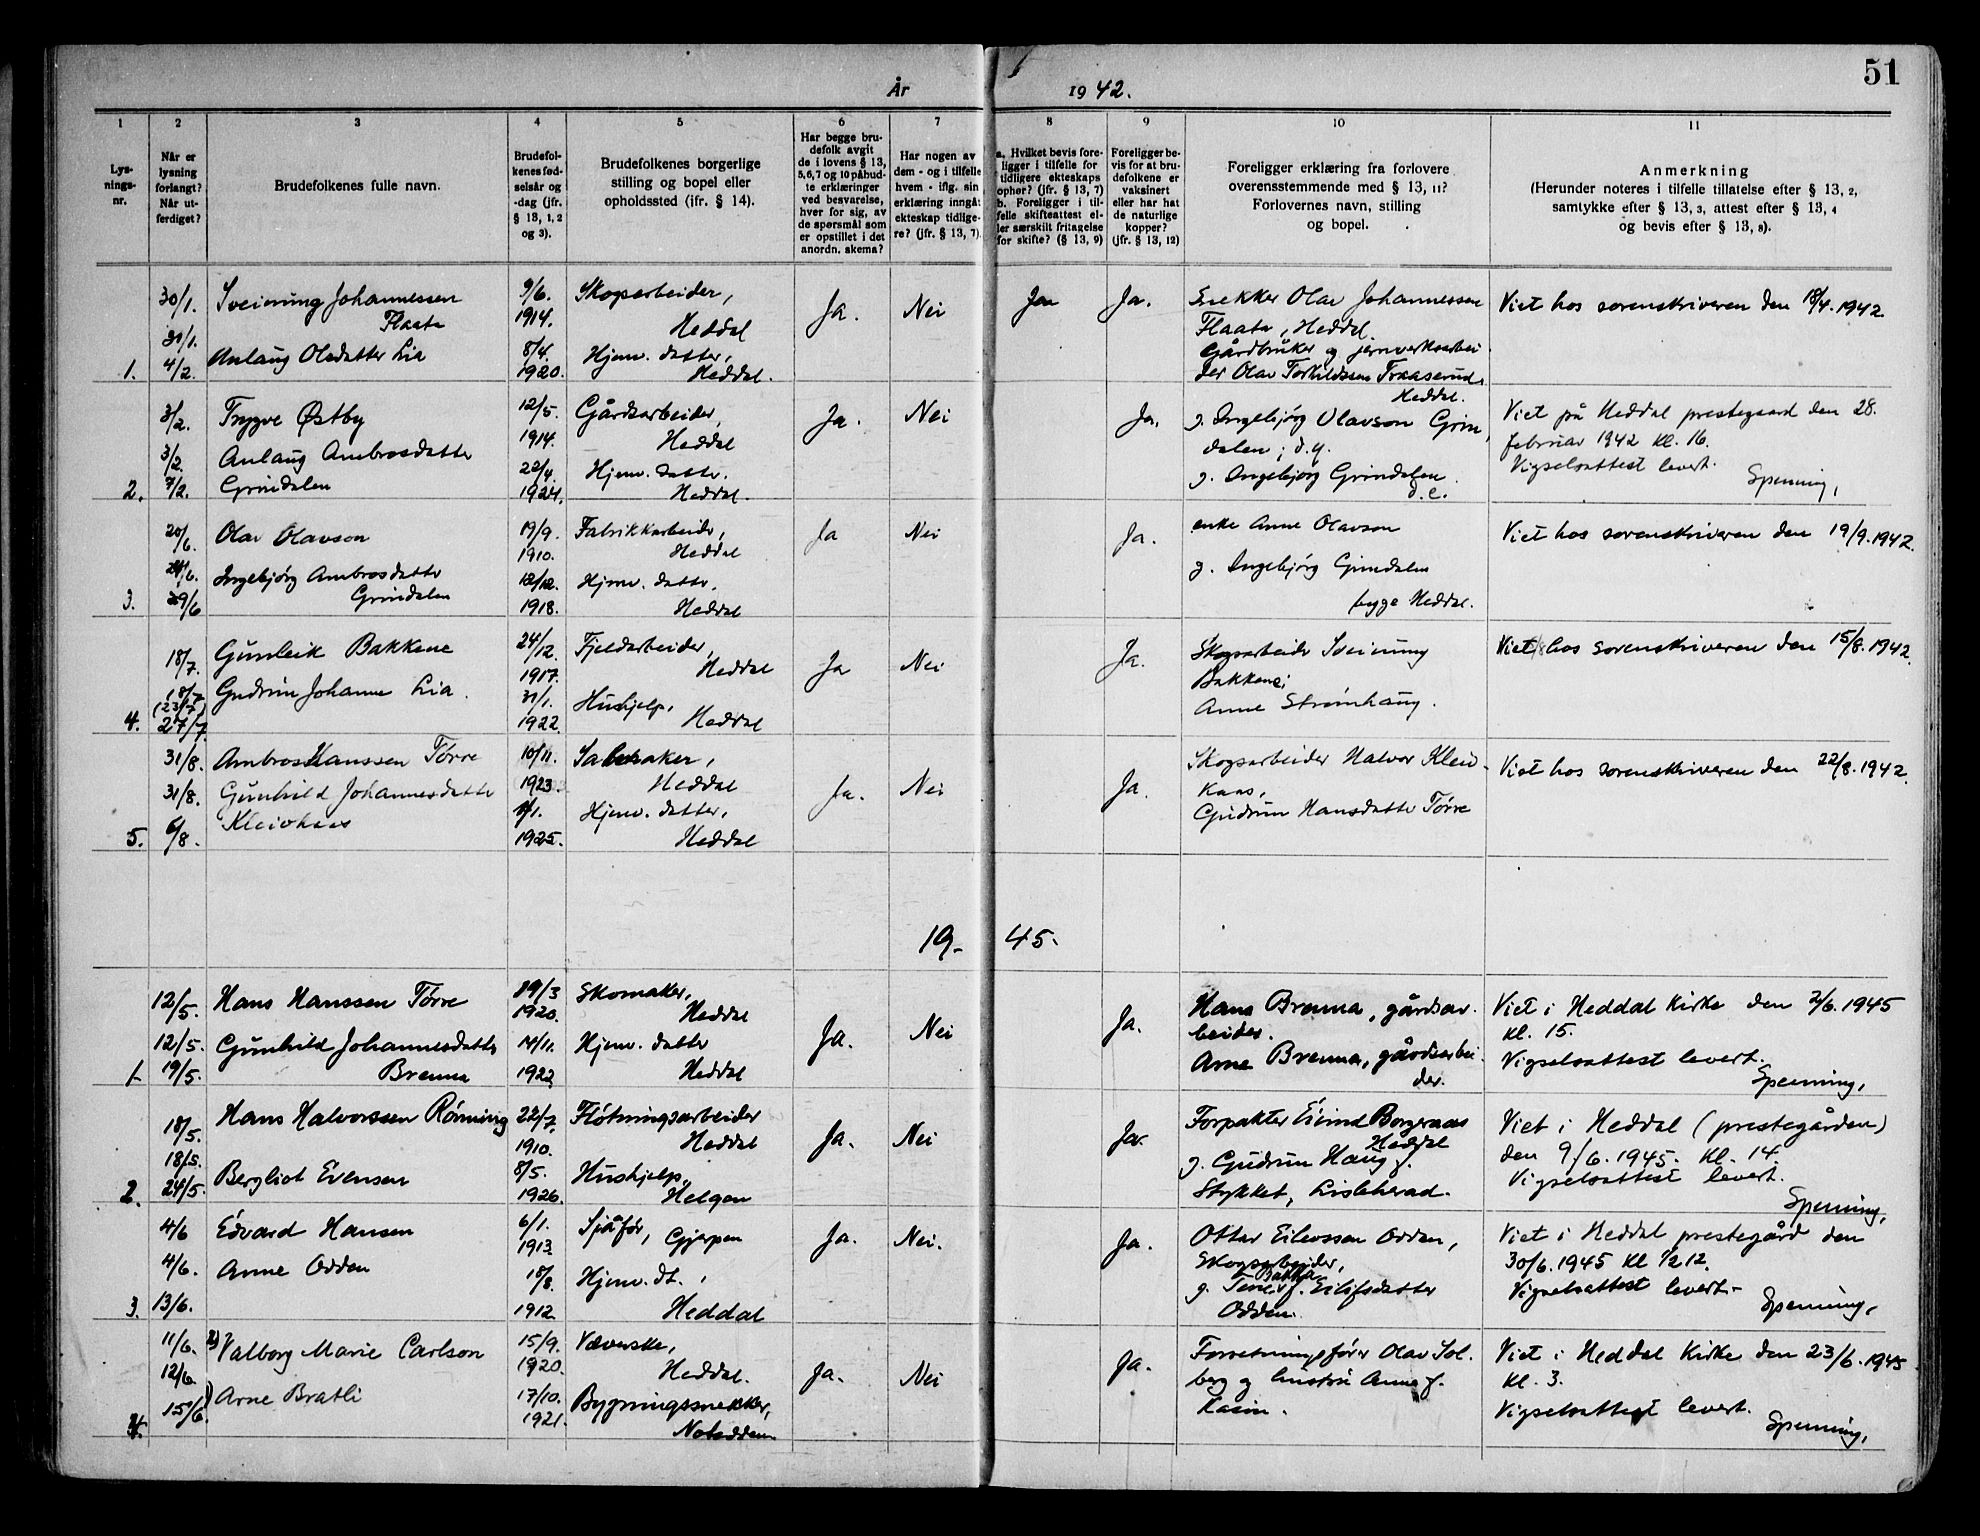 51
År 1942.
1 2 3 4 5 6 7 8 9 10 11
Lys-
nings-
nr.
Når er
lysning
forlangt?
Når ut-
ferdiget?
Brudefolkenes fulle navn.
Brudefol-
kenes fød-
selsår og
-dag (jfr.
§ 13, 1, 2
og 3).
Brudefolkenes borgerlige
stilling og bopel eller
opholdssted (ifr. § 14).
Har begge bru-
defolk avgit
de i lovens § 13,
5,6,7 og 10 påbud-
te erklæringer
ved besvarelse,
hver for sig, av
de spørsmål som
er opstillet i det
anordn. skema?
Har nogen av
dem - og i tilfelle
hvem - iflg. sin
erklæring inngåt
ekteskap tidlige-
re? (jfr. § 13, 7).
a. Hvilket bevis fore-
ligger i tilfelle for
tidligere ekteskaps
ophør? (jfr. § 13, 7)
b. Foreligger i til-
felle skifteattest el-
ler særskilt fritagelse
for skifte? (§ 13, 9)
Foreligger be-
vis for at bru-
defolkene er
vaksinert
eller har hat
de naturlige
kopper?
(jfr. § 13, 12)
Foreligger erklæring fra forlovere
overensstemmende med § 13, 11?
Forlovernes navn, stilling
og bopel.
Anmerkning
(Herunder noteres i tilfelle tillatelse efter § 13, 2,
samtykke efter § 13, 3, attest efter § 13, 4
og bevis efter § 13, 8).
1.
30/1.
31/1.
4/2.
Sveinung Johannessen
Flaata
Anlaug Olsdatter Lia
9/6.
1914.
8/4.
1920.
Skogsarbeider,
Heddal
Hjemv. datter,
Heddal.
Ja.
Nei
Ja.
Snekker Olav Johannessen
Flaata, Heddal.
Gårdbruker og jernverksarbei-
der Olav Torkildssen Traaserud
Heddal.
Viet hos sorenskriveren den 18/4. 1942.
2.
3/2.
3/2.
7/2.
Trygve Østby
Anlaug Ambrosdatter
Grindalen
12/5.
1914.
22/4.
1924.
Gårdsarbeider,
Heddal
Hjemv. datter.
Heddal.
Ja.
Nei
Ja.
g. Ingebjørg Olavson Grin-
dalen; d.y.
g. Ingebjørg Grindalen
d.e.
Viet på Heddal prestegaard den 28.
februar 1942 kl. 16.
Vigselsattest levert.
Spenning,
3.
20/6.
24/6.
29/6
Olav Olavson
Ingebjørg Ambrosdatter
Grindalen
19/9.
1910.
12/12.
1918.
Fabrikkarbeider,
Heddal
Hjemv. datter,
Heddal
Ja
Nei
Ja.
enke Anne Olavson
g. Ingebjørg Grindalen
begge Heddal.
Viet hos sorenskriveren den 19/9. 1942.
4.
18/7.
18/7
(23/7)
27/7.
Gunleik Bakkene
Gudrun Johanne Lia.
24/12.
1917.
31/1.
1922.
Fjeldarbeider,
Heddal
Hushjelp,
Heddal
Ja
Nei
Ja.
Skogsarbeider Sveinung
Bakkene;
Anne Strømhaug.
Viet hos sorenskriveren den 15/8. 1942.
5.
31/8.
31/8.
6/8.
Ambros Hanssen Tørre
Gunhild Johannesdatter
Kleivkaas
10/11.
1923.
1/1.
1925.
Salmaker,
Heddal
Hjemv. datter,
Heddal
Ja.
Nei
Ja.
Skogsarbeider Halvor Kleiv-
kaas,
Gudrun Hansdatter Tørre
Viet hos sorenskriveren den 22/8. 1942.
19- 45.
1.
12/5.
12/5.
19/5.
Hans Hanssen Tørre
Gunhild Johannesdatter
Brenna
29/3
1920.
14/11.
1922
Skomaker,
Heddal
Hjemv. datter
Heddal
Ja.
Nei
Ja.
Hans Brenna, gårdsar-
beider.
Arne Brenna, gårdsarbei-
der.
Viet i Heddal kirke den 2/6. 1945
kl. 15.
Vigselsattest levert.
Spenning,
2.
18/5.
18/5.
24/5.
Hans Halvorssen Rønning
Bergliot Evensen
22/7.
1910.
8/5.
1926.
Fløtningsarbeider
Heddal
Hushjelp,
Helgen
Ja.
Nei
Ja.
Forpakter Eivind Borgeraas
Heddal
g. Gudrun Haug f.
Stykket, Lisleherad.
Viet i Heddal (prestegården)
den 9/6. 1945. kl. 14.
Vigselsattest levert.
Spenning,
3.
4/6
4/6.
13/6.
Edvard Hansen
Anne Odden
6/1.
1913
18/8.
1912.
Sjåfør, Gjerpen
Hjemv. dt.,
Heddal
Ja.
Nei.
Ja.
Ottar Eilevssen Odden,
Skogsarbeider,
Bakka
g. f. Eilifsdatter
Odden.
Viet i Heddal prestegård den
30/6. 1945 kl 1/2 12.
Vigselsattest levert.-
Spenning,
4.
11/6.
12/6.
15/6.
2) Valborg Marie Carlson
1) Arne Bratli
15/9.
1920.
17/10.
1921.
Væverske,
Heddal.
Bygningssnekker,
Notodden.
Ja.
Nei
Ja.
Forretningsfører Olav Sol-
berg og hustru Anna f.
Kasin.
Viet i Heddal kirke den 23/6. 1945
kl. 3.
Vigselsattest levert.
Spenning,